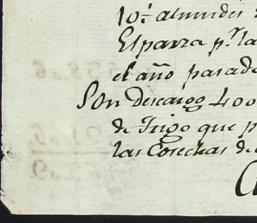 10.s almudes
Esparza p.r la
el año pasado
Son descargo 400
de Trigo que p
las Cosechas de